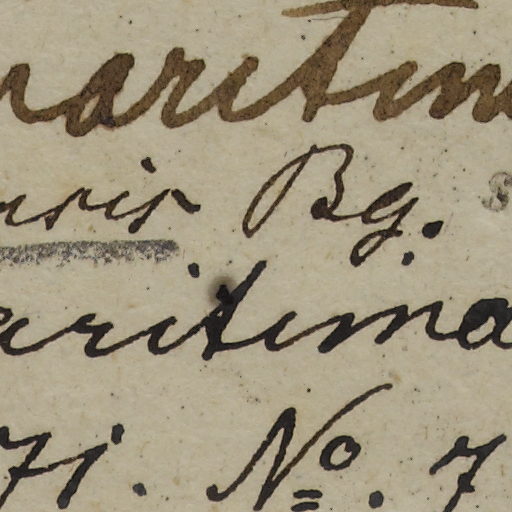 aritim
uris Bg.
aritima
71. No. 7